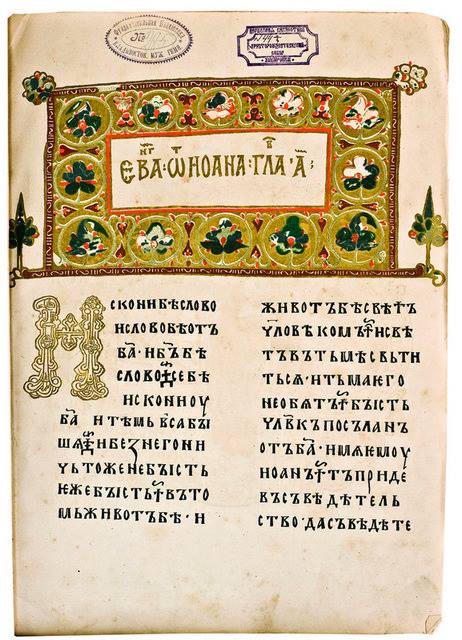 ЕВА҃Г : ѾИОАНА · ГЛА҃В · А҃ ;
ИСКОНИБѢСЛОВО
ИСЛОВОБѢОТЪ
БА҃ · ИБЪ҃БѢ
СЛОВО СЕБѢ
ИСКОНИОУ
БА҃ ИТѢМЬВЬСАБЫ
ШѦ ИБЕЗНЕГОНИ
ЧЬТОЖЕНЕБЫСТЬ
ѤЖЕБЫСТЬ ВЪТО
МЬЖИВОТЪБѢ · И
ЖИВОТЪБѢСВѢТЪ
ЧЛОВѢКОМЪ ИСВѢ
ТЪВЪТЬМѢСВЬТИ
ТЬСѦ · ИТЬМАѤГО
НЕОБѦТЪ БЫСТЬ
ЧЛ҃ВКЪПОСЪЛАНЪ
ОТЪБА҃ · ИМѦѤМОУ
ИОАНЪ ТЪПРИДЕ
ВЪСЪВѢДѢТЕЛЬ
СТВО · ДАСЪВѢДѢТЕ